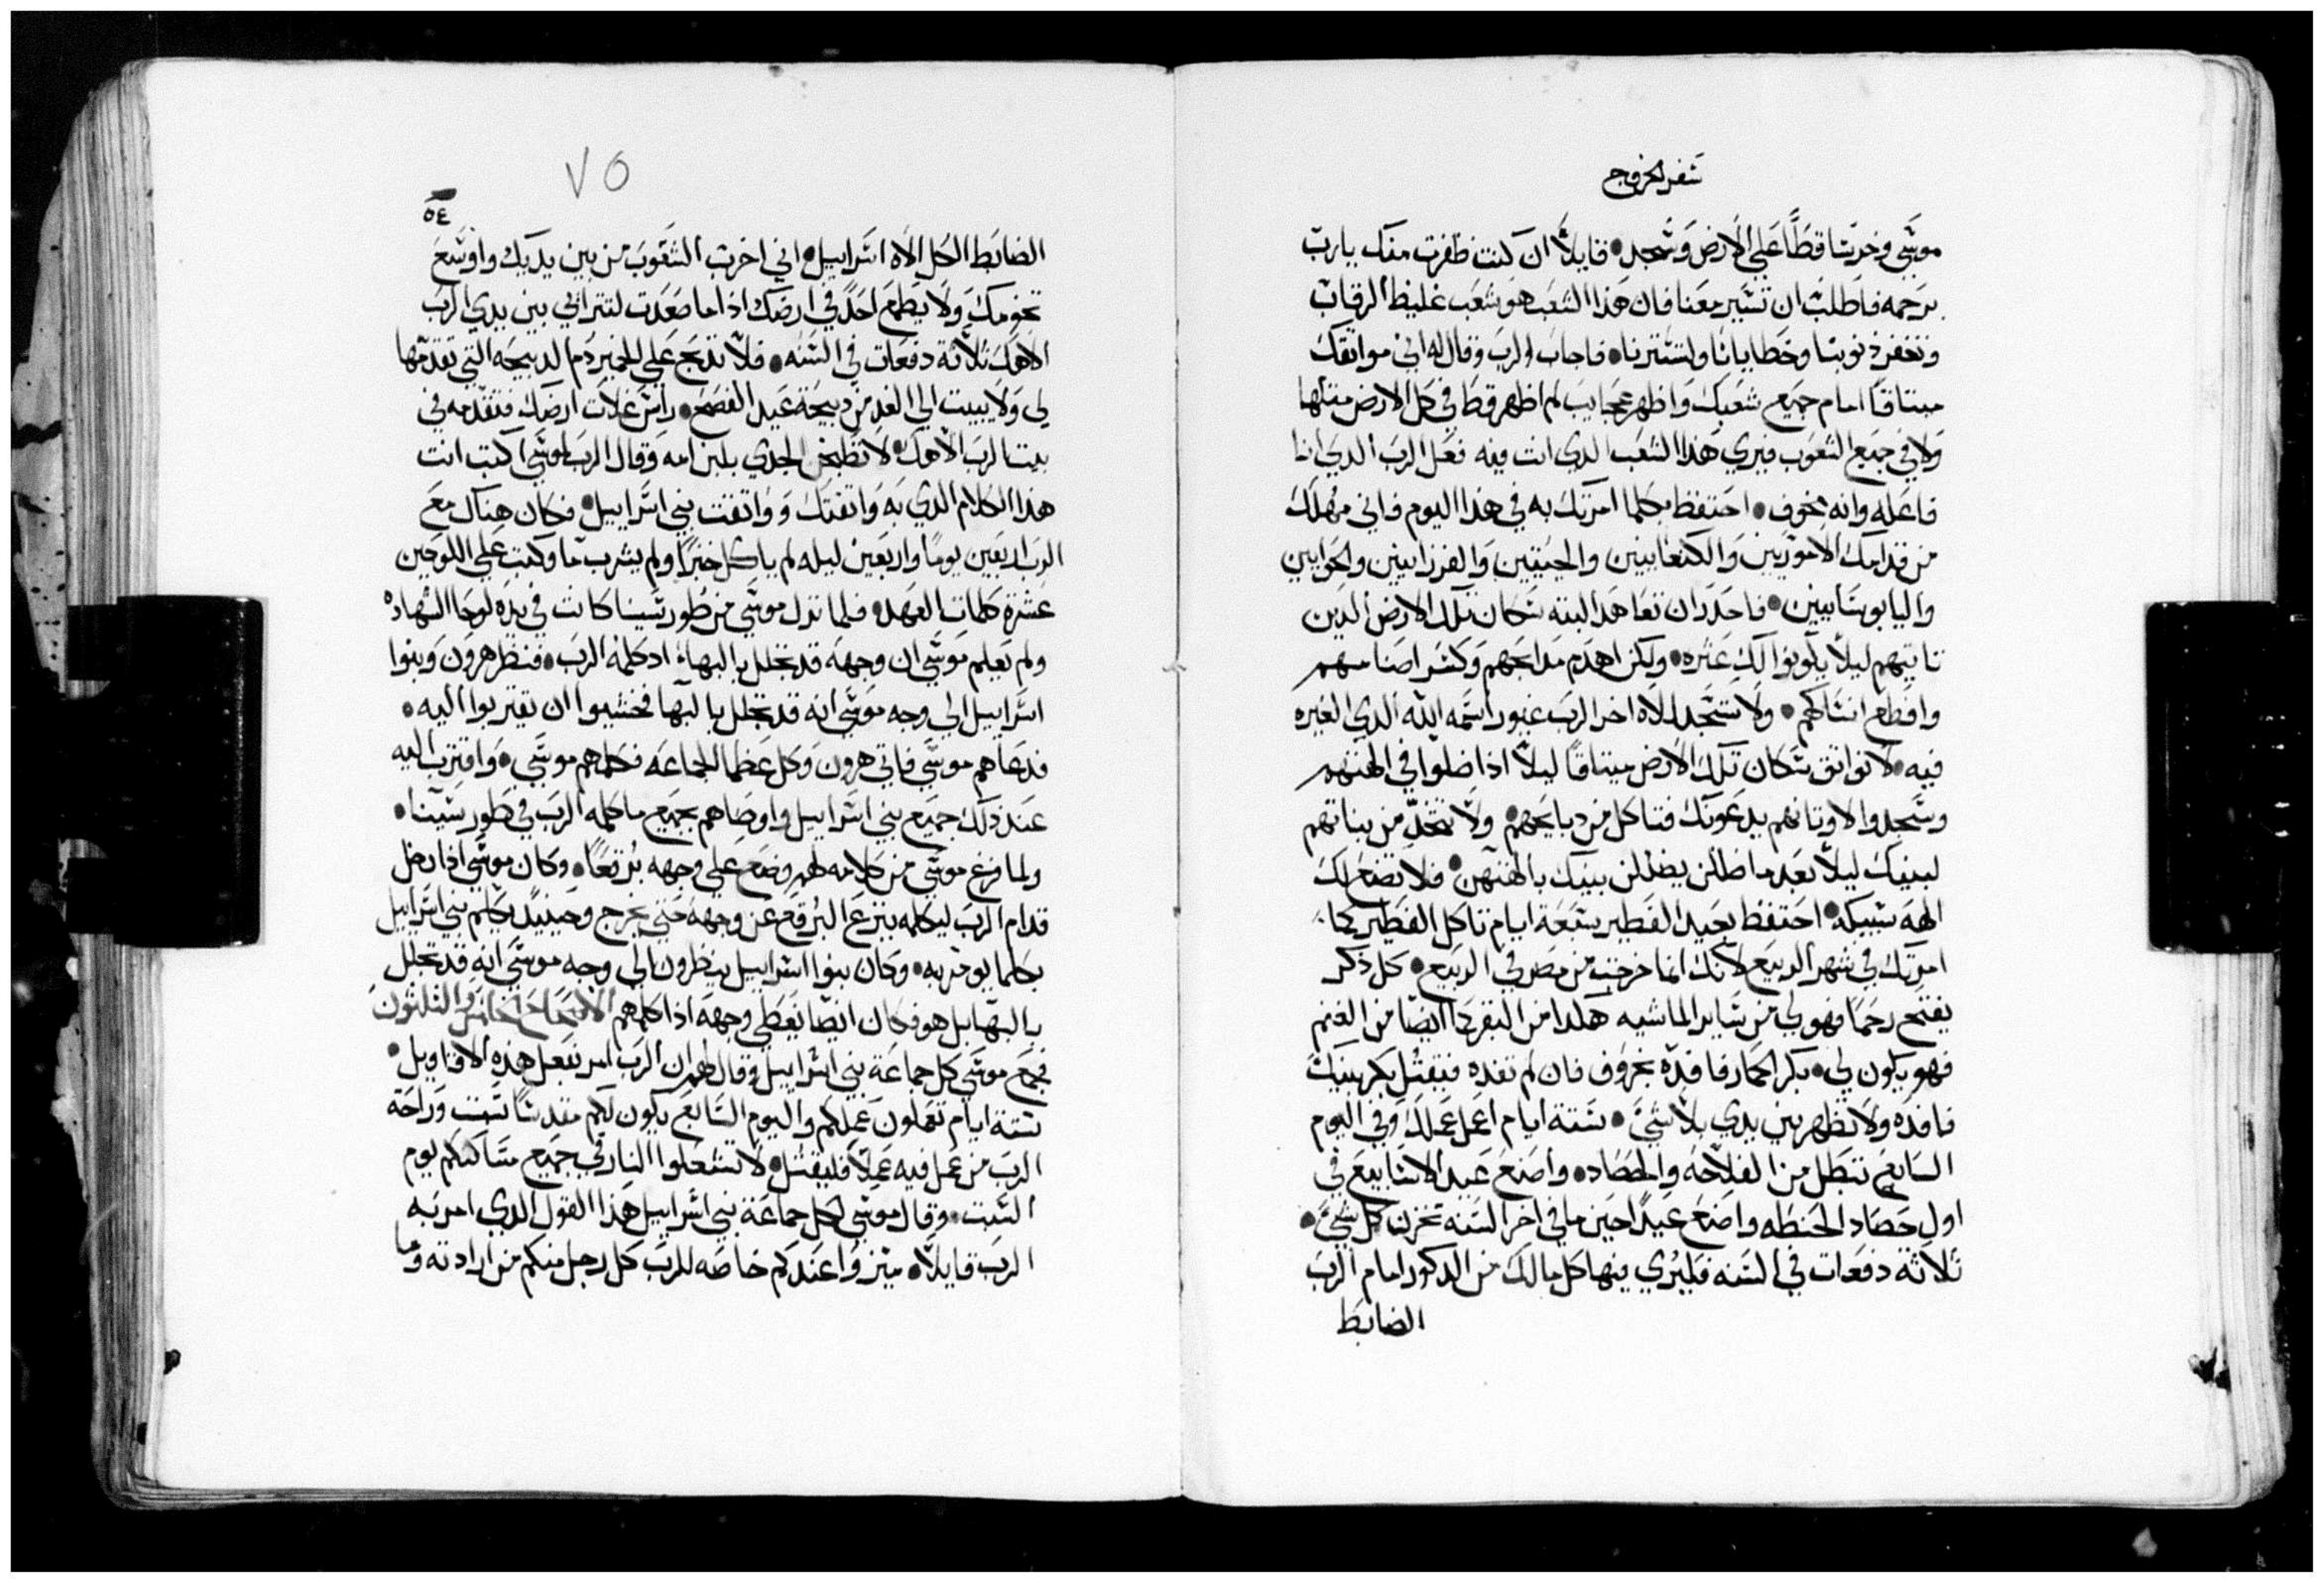 سفر الخروج
موسى وخر ساقطًا على الارض وسجد • قايلاً ان كنت ظفرت منك يارب
برحمه فاطلب ان تسير معنا فان هذا الشعب هو شعب غليظ الرقاب
وتغفر ذنوبنا وخطايانا ولتسترنا • فاجاب الرب وقال له اني مواثقك
ميتاقًا امام جميع شعبك واظهر عجايب لم اظهر قط في كل الارض مثلها
ولا في جميع الشعوب فيري هذا الشعب الدي انت فيه فعل الرب الدي انا
فاعله وانه مخوف • احتفظ بكلما امرتك به في هذا اليوم فاني مهلك
من قدامك الاموريين والكنعانيين والحيتيين والفرزانيين والحوايين
واليابوسانيين • فاحدر ان تعاهد البته سكان تلك الارض الدين
تاتيهم ليلاً يكونوا لك عثره • ولكن اهدم مدابحهم وكسر اصنامهم
واقطع انساكهم • ولا تسجد لالاه اخر الرب غيور اسمه الله الدي الغيره
فيه • لا تواثق سكان تلك الارض ميتاقًا ليلاً اذا ضلوا في الهتهم
وسجدوا لاوتانهم يدعونك فتاكل من دبايحهم • ولا تتخد من بناتهم
لبنيك ليلاً بعد ما ضللن يضللن ببنيك بالهتهن • فلا تصنع لك
الهه سبيكه • احتفظ بعيد الفطير سبعة ايام تاكل الفطير كما
امرتك في شهر الربيع لانك انما خرجت من مصر في الربيع • كل ذكر
يفتح رحمًا فهو لي من ساير الماشيه هكدا من البقر كما ايضا من الغنم
فهو يكون لي • بكر الحمار فافده بخروف فان لم تفده فيقتل بكر بنيك
فافده ولا تظهر بين يدي بلا شيء • ستة ايام اعمل عملك وفي اليوم
السابع تتبطل من الفلاحه والحصاد • واصنع عيد الاسابيع في
اول حصاد الحنطه واصنع عيدًا حين ما في اخر السنه تخزن كل شيء •
تلاتة دفعات في السنه فليُري فيها كل مالك من الدكور امام الرب
الضابط
٧٥
٥٤
الضابط الكل الاه اسراييل • اني اخرب الشعوب من بين يديك واوسع
تخومك ولا يطمع احدٌ في ارضك اذا ما صعدت لتترأي بين يدي الرب
الاهك تلاتة دفعات في السنه • فلا تدبح على الخمير دم الدبيحه التي تقدمها
لي ولا يبيت الي الغد من دبيحة عيد الفصح • راس غلات ارضك فتقدمه في
بيت الرب الاهك • لا تطبخن الجدي بلبن امه وقال الرب لموسى اكتب انت
هذا الكلام الدي به واتقتك وواتقت بني اسراييل • فكان هناك مع
الرب اربعين يومًا واربعين ليله لم ياكل خبزًا ولم يشرب ما وكتب على اللوحين
عشرة كلمات العهد • فلما نزل موسى من طور سينا كانت في يده لوحا الشهاده
ولم يعلم موسى ان وجهه قد تجلل بالبهاء اد كلمه الرب • فنظر هرون وبنوا
اسراييل الى وجه موسى انه قد تجلل بالبها فخشيوا ان يقتربوا اليه •
فدعاهم موسى فاتي هرون وكل عظما الجماعه فكلمهم موسى • واقترب اليه
عند ذلك جميع بني اسراييل واوصاهم بجميع ما كلمه الرب في طور سينا •
ولما فرغ موسى من كلامه لهم وضع على وجهه برقعًا • وكان موسى اذا دخل
قدام الرب ليكلمه ينزع البرقع عن وجهه حتى يخرج وحينيدٍ يكلم بني اسراييل
بكلما يومر به • وكان بنوا اسراييل ينظرون الي وجه موسى انه قد تجلل
بالبها بل هو فكان ايضا يغطي وجهه اذا كلمهم الاصحاح الخامس والتلتون
فجمع موسى كل جماعة بني اسراييل وقال لهم ان الرب امر نفعل هذه الاقاويل •
ستة ايام تعملون عملكم واليوم السابع يكون لكم مقدسًا سبت وراحة
الرب من عمل فيه عملاً فليقتل • لا تشعلوا النار في جميع مساكنكم يوم
السبت • وقال موسى لكل جماعة بني اسراييل هذا القول الدي امر به
الرب قايلاً • ميزوا عندكم خاصه للرب كل رجل منكم من ارادته وما